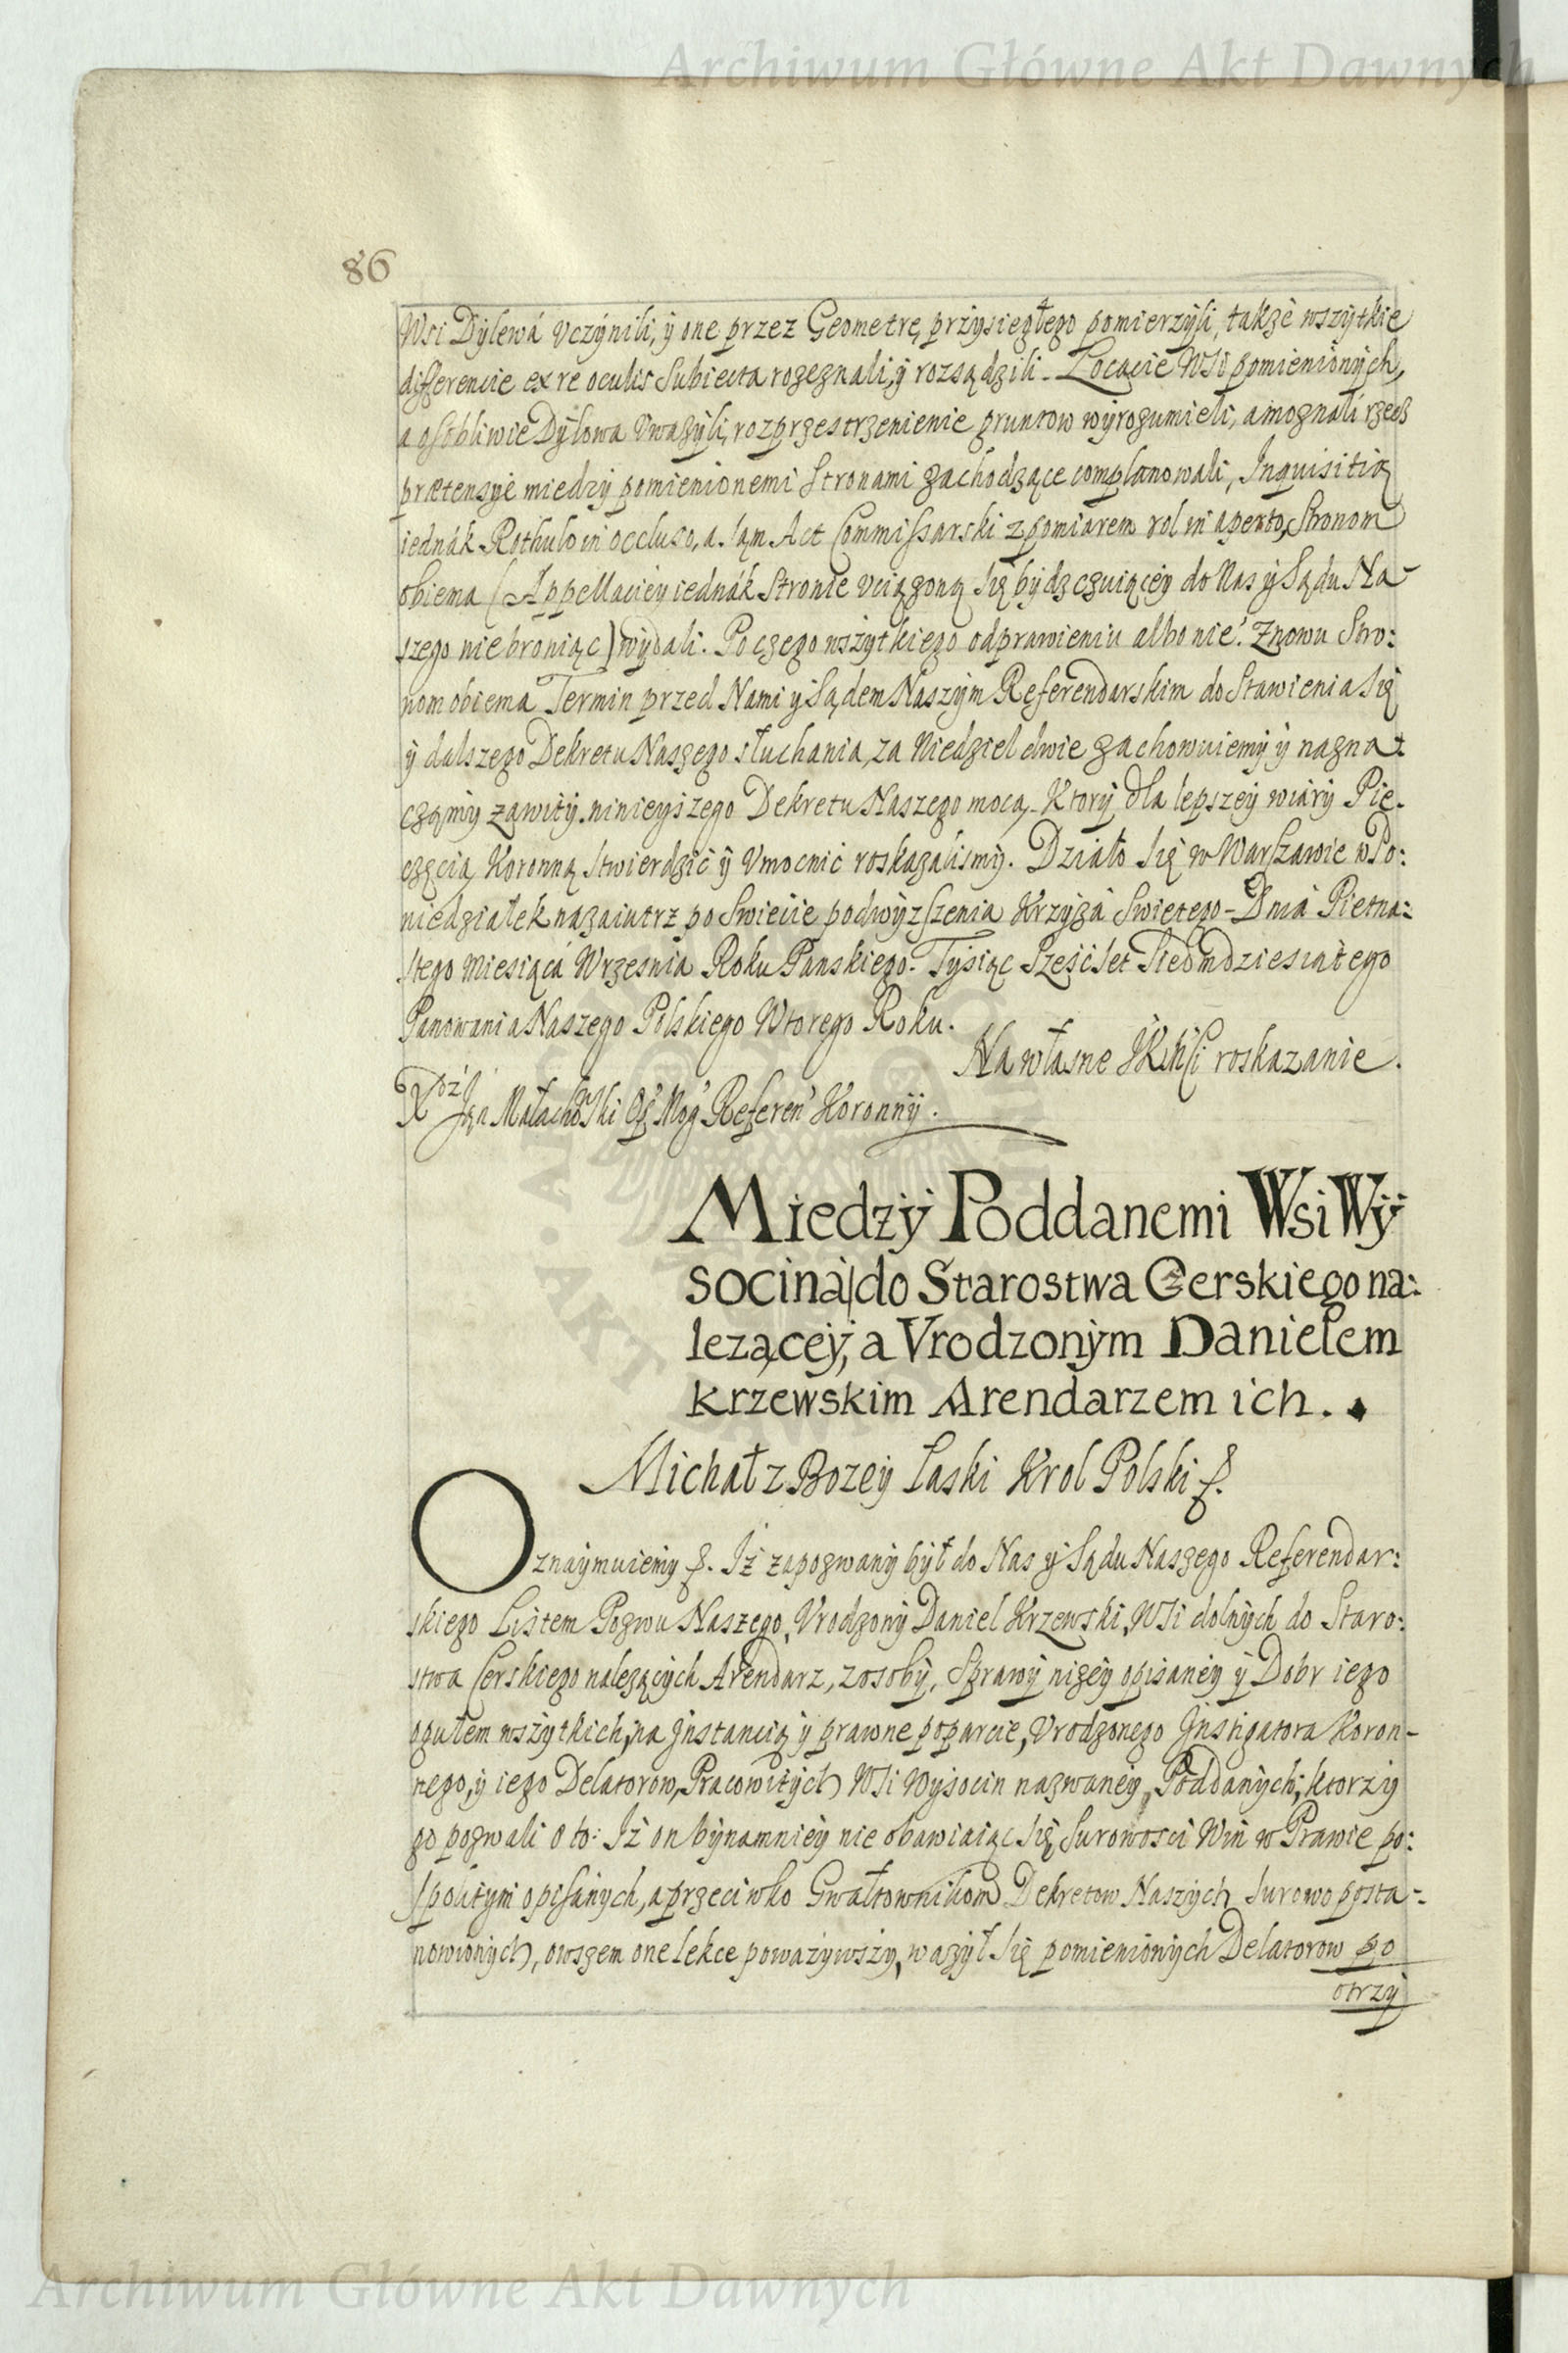 Archiwum Główne Akt Dawnych
86
Wsi Dylewá vczynili, y one przez Geometrę przysięgłego pomierzyli, także wszytkie
differencie ex re oculis Subiecta rozeznali, y rozsądzili. Locacie Wsi pomienionych,
a osobliwie Dylowa Uwazyli, rozprzestrzenienie gruntow wyrozumieli,
prætensye miedzy pomienionemi Stronami zachodzące complanowali, Inquisitią
iednák Rothulo in occluso, a sąm Act Commissarski z pomiarem rol in aperto, Stronom
obiema (Appellaciey iednák Stronie vciązoną się bydz czuiącey do Nas y Sądu Na-
szego nie broniąc) wydali. Po czego wszytkiego odprawieniu albo nie. Znowu Stro:
nom obiema Termin przed Nami y Sądem Naszym Referendarskim do Stawienia się
y dalszego Dekretu Naszego słuchania, za Niedziel dwie zachowuiemy y nazna-
czamy zawity. ninieyszego Dekretu Naszego mocą. Ktory dla lepszey wiáry Pie-
częcią Koronną stwierdzić y Vmocnić roskazalismy. Działo się w Warszawie w Po:
niedziałek nazaiutrz po Swięcie podwyzszenia Krzyzá Swiętego - Dnia Pietna:
stego Miesiącá Wrzesnia Roku Panskiego. Tysiąc Szescset Siedmdziesiątego
Panowania Naszego Polskiego Wtorego Roku.
Na własne JKMSci roskazanie.
Jan Małachowski Referen Koronny.
Miedzy Poddanemi Wsi Wy
socina do Starostwa Czerskiego na:
lezącey, a Vrodzonym Danielem
krzewskim Arendarzem ich.
Michał z Bozey Łaski Krol Polski &.
Oznaymuiemy &. Iż zapozwany był do Nas y Sądu Naszego Referendar:
skiego Listem Pozwu Naszego, Vrodzony Daniel Krzewski, Wsi dolnych do Staro:
stwa Cerskiego nalezących Arendarz, z osoby, Sprawy nizey opisaney y Dobr iego
ogułem wszytkich, na Jnstancią y prawne poparcie, Vrodzonego Jnstigatora Koron-
nego, y iego Delatorow, Pracowitych Wsi Wysocin nazwaney, Poddanych; ktorzy
go pozwali o to: Iż on bynamniey nie obawiaiąc się Surowosci Win w Prawie po:
spolitym opisanych, a przeciwko Gwałtownikom Dekretow Naszych surowo posta-
nowionych, owszem one lekce powazywszy, wazył się pomienionych Delatorow po
otrzy
Archiwum Główne Akt Dawnych